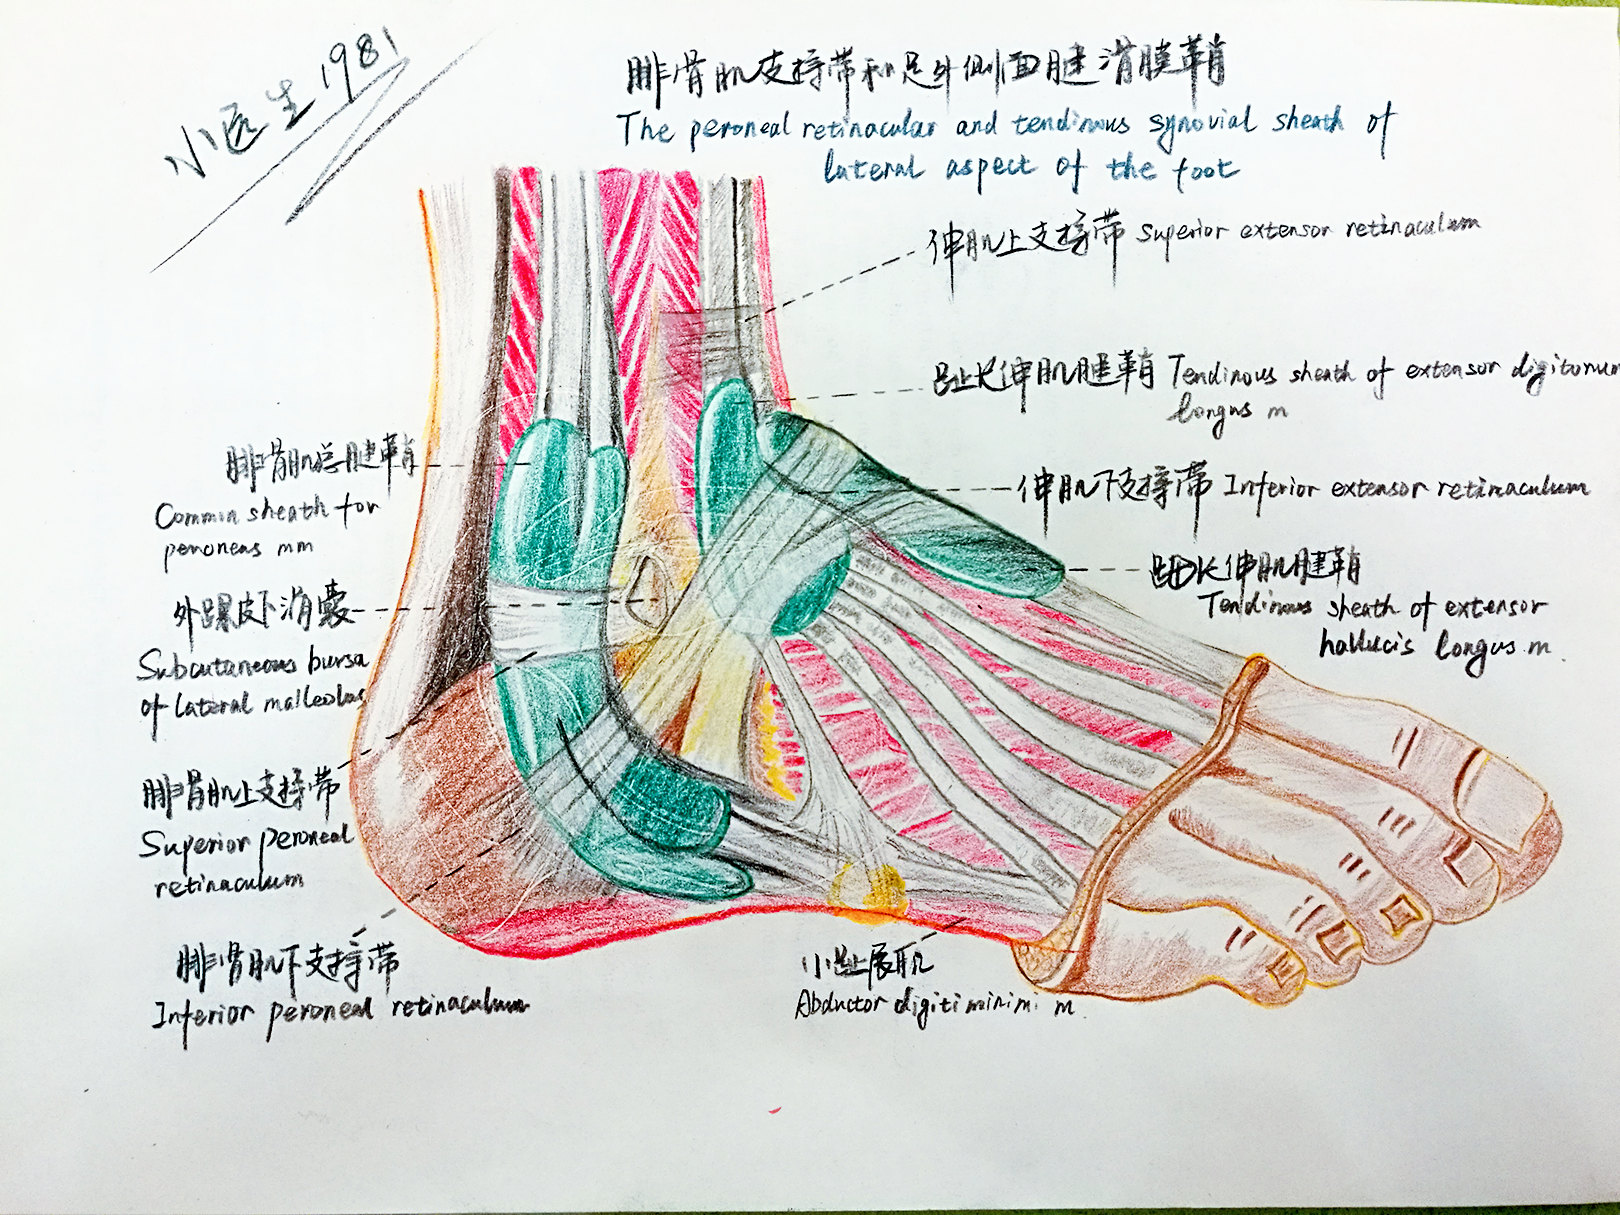 小医生1981
腓骨肌支持带和足外侧面腱滑膜鞘
The peroneal retinacular and tendinous synovial sheath of
lateral aspect of the foot
伸肌上支持带 Superior extensor retinaculum
趾长伸肌腱鞘 Tendinous sheath of extensor digitorum
longus m
伸肌下支持带 Inferior extensor retinaculum
𧿹长伸肌腱鞘
Tendinous sheath of extensor
hallucis longus m.
腓骨肌总腱鞘
Common sheath for
peroneus mm
外踝皮下滑囊
Subcutaneous bursa
of lateral malleolus
腓骨肌上支持带
Superior peroneal
retinaculum
腓骨肌下支持带
Inferior peroneal retinaculum
小趾展肌
Abductor digiti minimi m